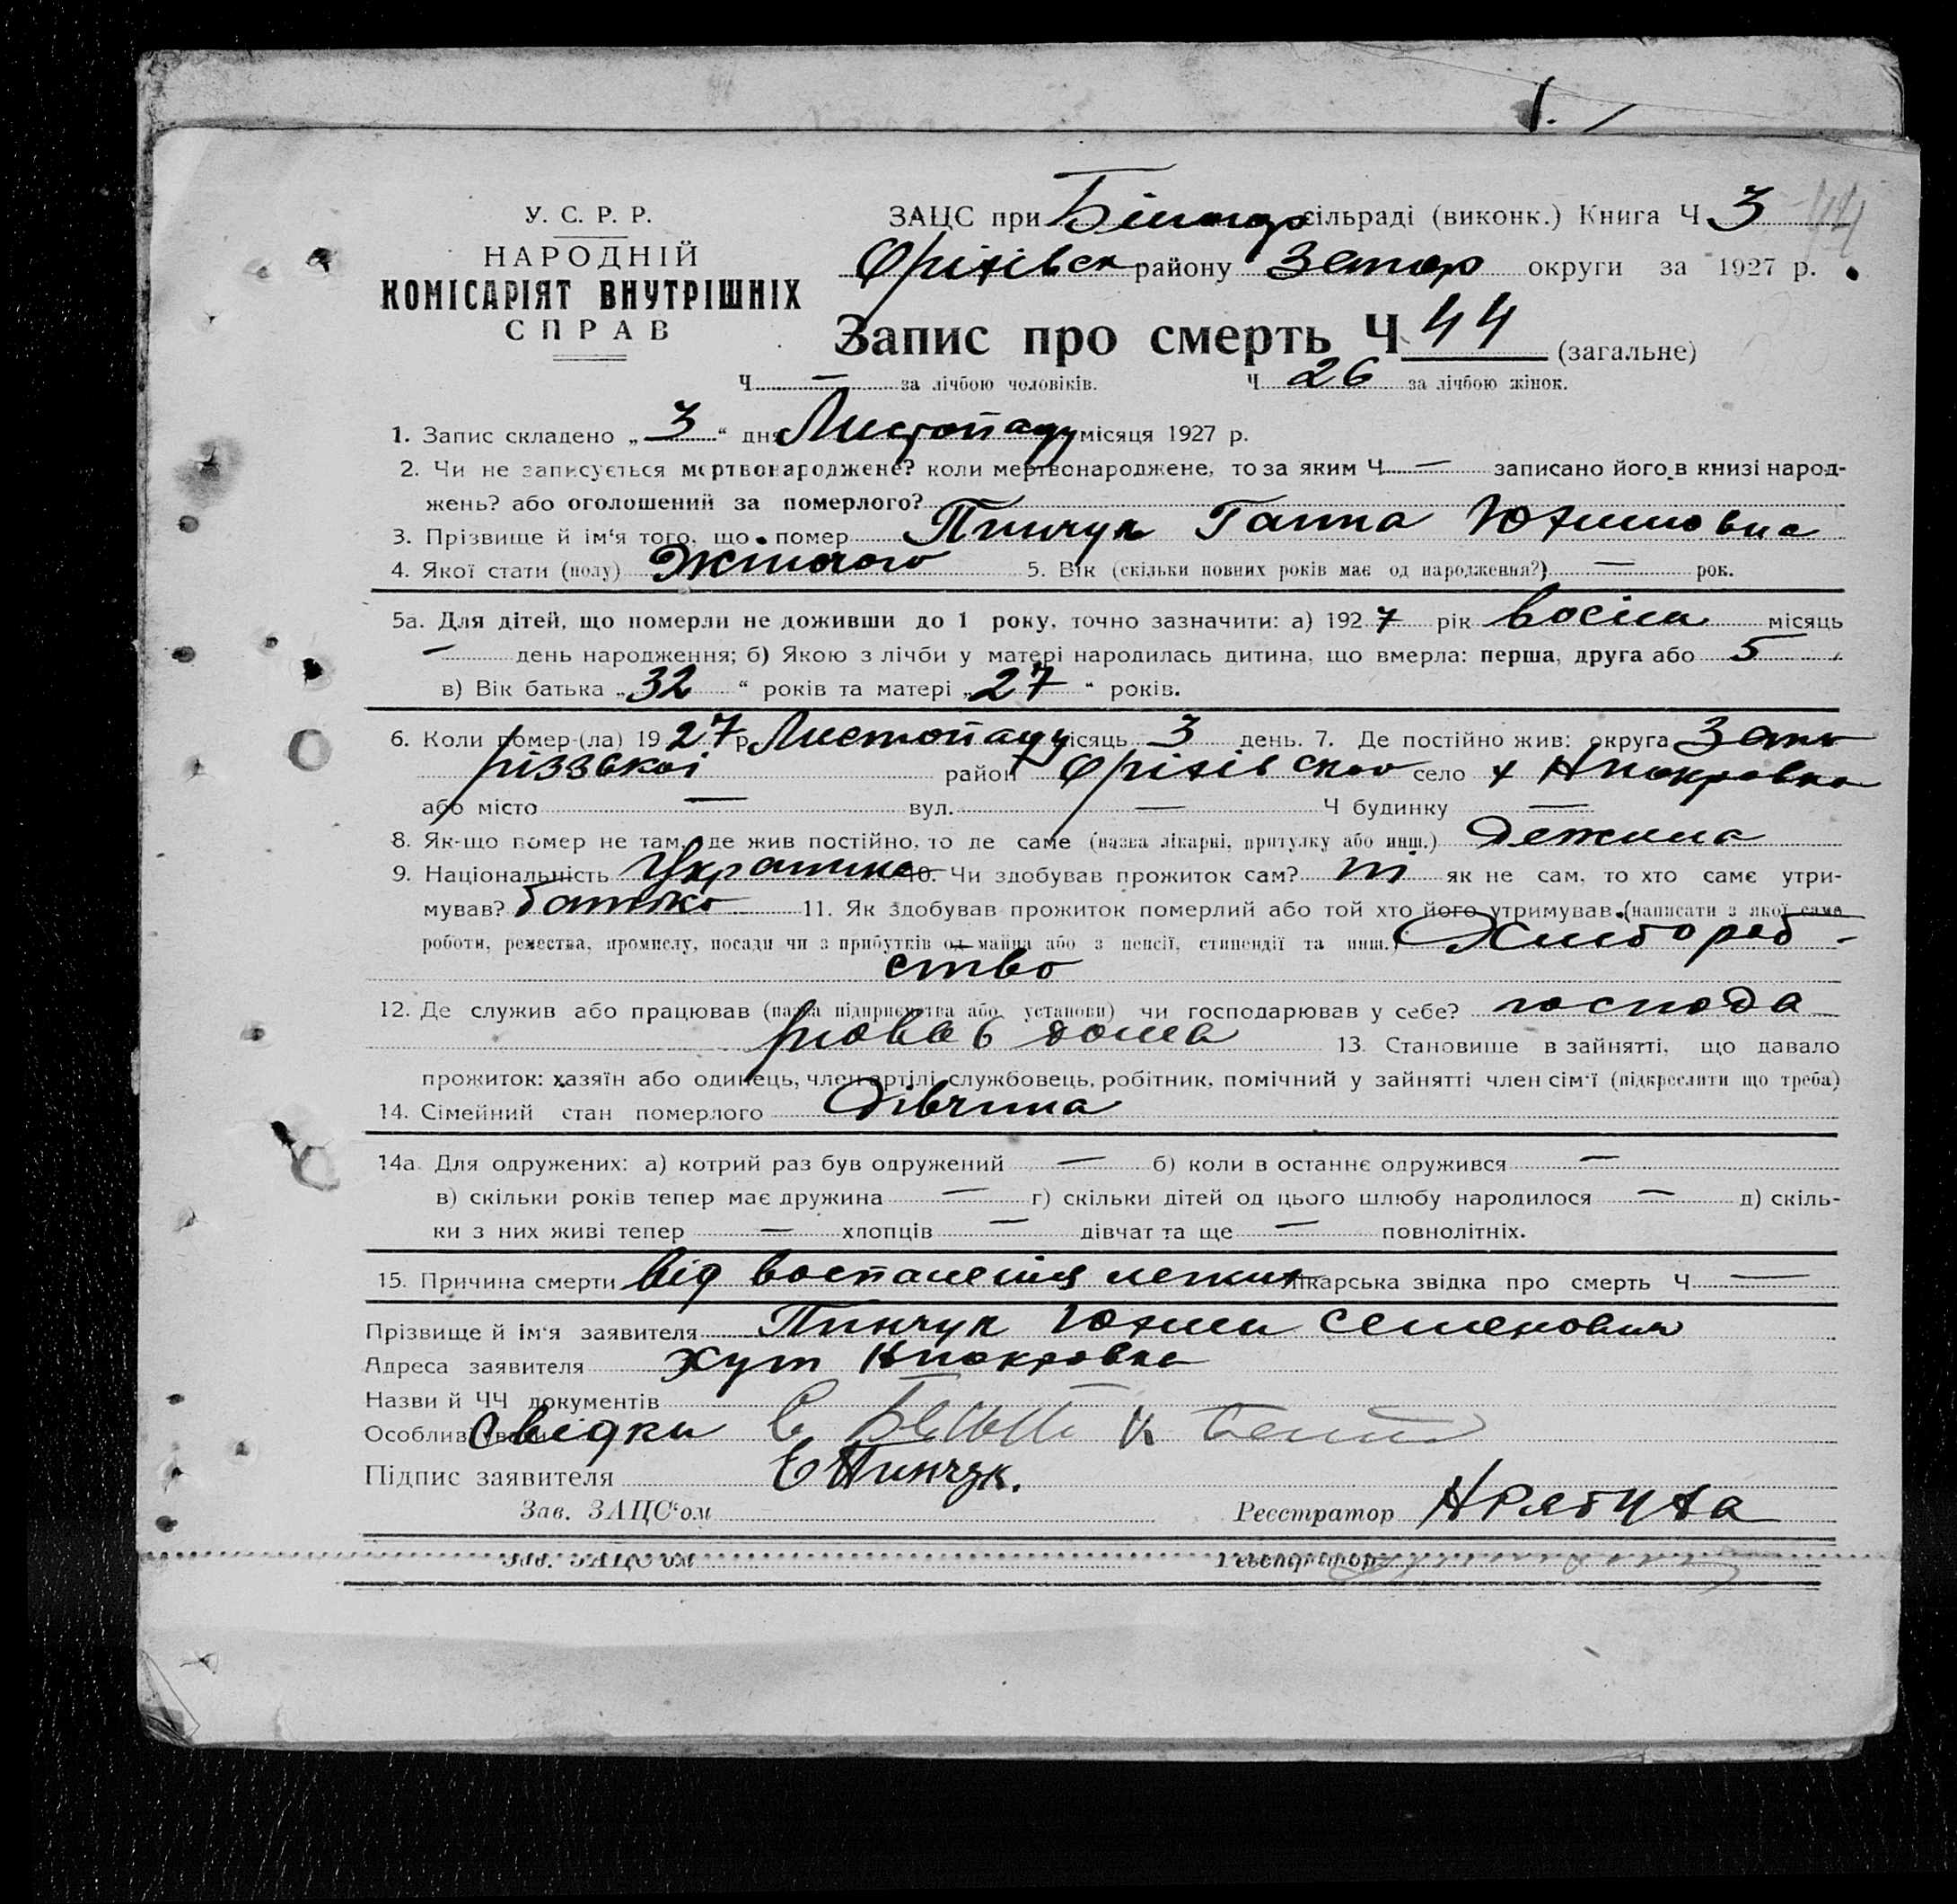 У. С. Р. Р.
НАРОДНІЙ
КОМІСАРІЯТ ВНУТРІШНІХ
СПРАВ
ЗАЦС при сільраді (виконк.) Книга Ч 3
Оріхівск району Запор округи за 1927 р.
Запис про смерть Ч 44 (загальне)
Ч — за лічбою чоловіків. Ч 26 за лічбою жінок.
1. Запис складено „ 3 “ дня Листопаду місяця 1927 р.
2. Чи не записується мертвонароджене? коли мертвонароджене, то за яким Ч — записано його в книзі народ-
жень? або оголошений за померлого?
3. Прізвище й ім‘я того, що помер Пинчук Ганна Юхимовна
4. Якої стати (полу) Жіночого 5. Вік (скільки повних років має од народження?) — рок.
5а. Для дітей, що померли не доживши до 1 року, точно зазначити: а) 1927 рік місяць
— день народження; б) Якою з лічби у матері народилась дитина, що вмерла: перша, друга або 5
в) Вік батька „ 32 “ років та матері „ 27 “ років.
6. Коли помер-(ла) 1927 р. Листопаду місяць 3 день. 7. Де постійно жив: округа Запо
різзької район Оріхівского село х Нпокровка
або місто — вул. — Ч будинку —
8. Як-що помер не там, де жив постійно, то де саме (назва лікарні, притулку або инш.)
9. Національність Украинка 10. Чи здобував прожиток сам? ні як не сам, то хто саме утри-
мував? батько 11. Як здобував прожиток померлий або той хто його утримував (написати з якої саме
роботи, ремества, промислу, посади чи з прибутків од майна або з пенсії, стипендії та инш.) Хлібороб-
ство
12. Де служив або працював (назва підприємства або установи) чи господарював у себе? господа
рював дома 13. Становище в зайнятті, що давало
прожиток: хазяїн або одинець, член артілі, службовець, робітник, помічний у зайнятті член сім‘ї (підкреслити що треба)
14. Сімейний стан померлого Дівчина
14а. Для одружених: а) котрий раз був одружений — б) коли в останнє одружився —
в) скільки років тепер має дружина — г) скільки дітей од цього шлюбу народилося — д) скіль-
ки з них живі тепер — хлопців — дівчат та ще — повнолітніх.
15. Причина смерти від воспаленія легких лікарська звідка про смерть Ч —
Прізвище й ім‘я заявителя Пинчук Юхим Семенович
Адреса заявителя хут Нпокровка
Назви й ЧЧ документів
Особливі уваги Свідки
Підпис заявителя Е Пинчук.
Зав. ЗАЦС‘ом Реєстратор
Зав. ЗАЦС‘ом Реєстратор